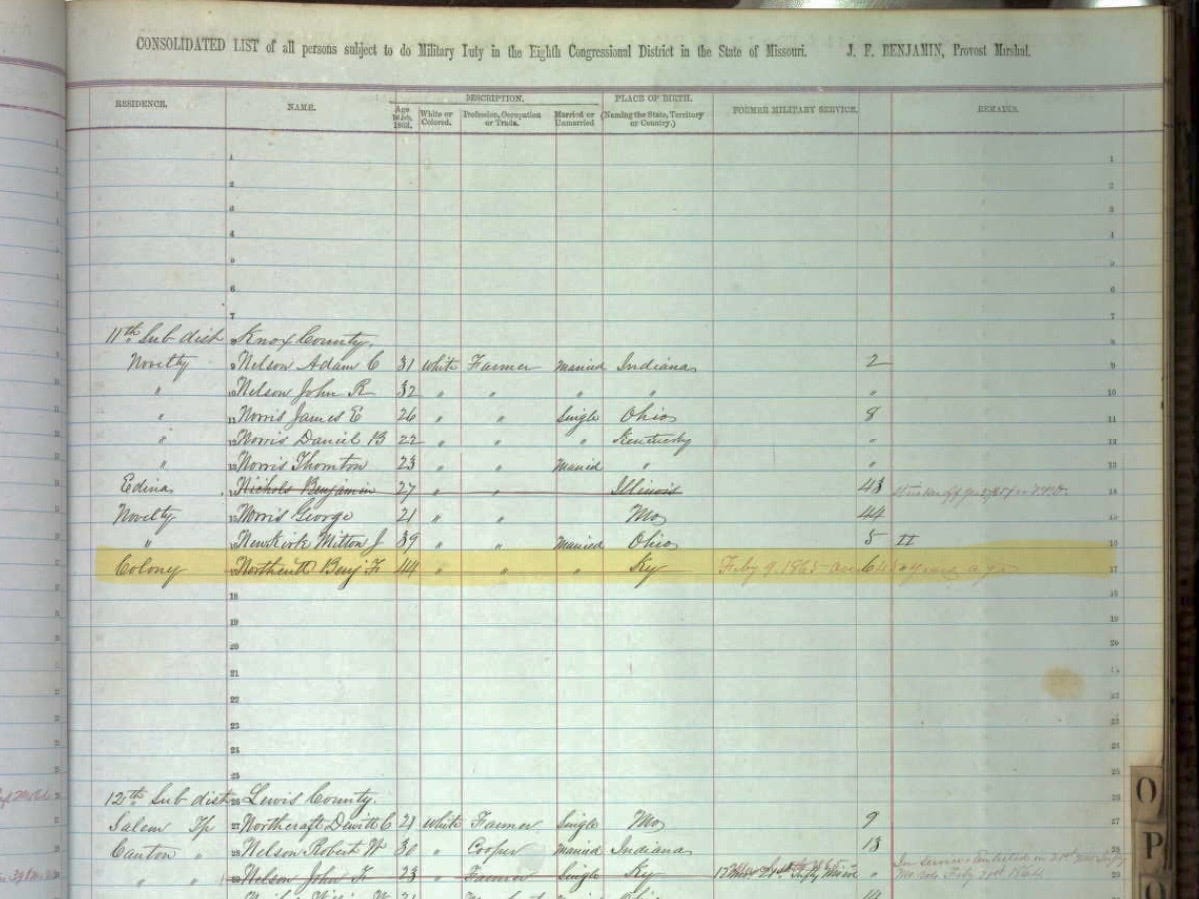 CONSOLIDATED LIST of all persons subject to do Military Duty in the Eighth Congressional District in the State of Missouri. J. F. BENJAMIN, Provost Marshal.
RESIDENCE. NAME. DESCRIPTION. PLACE OF BIRTH. FORMER MILITARY SERVICE. REMARKS.
Age 1st July, 1863. White or Colored. Profession, Occupation or Trade. Married or Unmarried (Naming the State, Territory or Country.)
1 1
2 2
3 3
4 4
5 5
6 6
7 7
11th Sub dist Knox County. 8
Novelty 9 Nelson Adam C 31 White Farmer Married Indiana 2 9
" 10 Nelson John R 32 " " " " " 10
" 11 Norris James E 26 " " Single Ohio 8 11
" 12 Norris Daniel B 22 " " " Kentucky " 12
" 13 Norris Thornton 23 " " Married " " 13
Edina 14 Nichols Benjamin 27 " " Illinois 43 14
Novelty 15 Morris George 21 " " Mo 44 15
" 16 Newkirk Milton J 39 " " Married Ohio 5 II 16
Colony 17 Northcutt Benj F 44 " " " Ky Feby 9. 1865 6 years ago 17
18 18
19 19
20 20
21 21
22 22
23 23
24 24
25 25
12th Sub dist 26 Lewis County. 26
Salem Tp 27 Northcraft Dewitt C 21 White Farmer Single Mo 9 27
Canton " 28 Nelson Robert W 30 " Cooper Married Indiana 13 28
" " 29 Nelson John F. 23 " Farmer Single Ky " 29
O
P